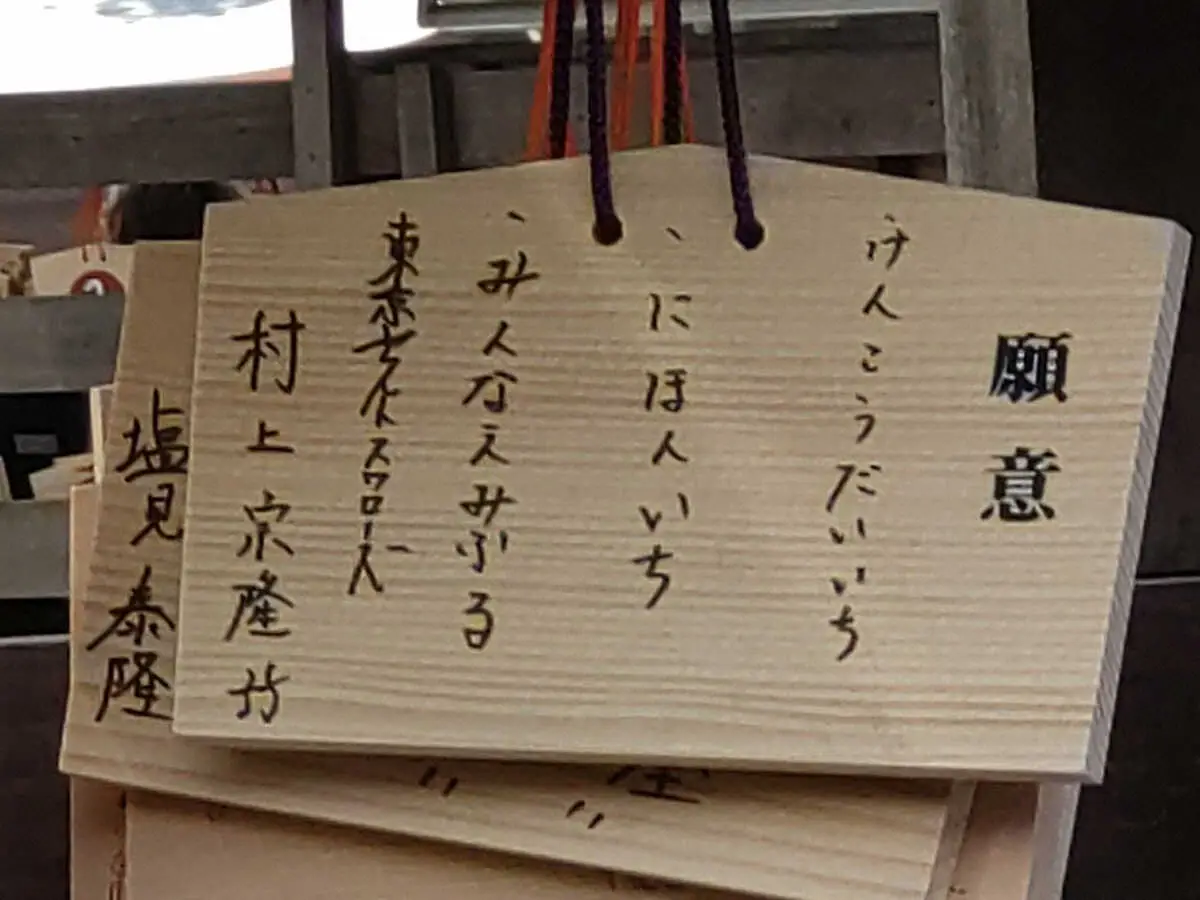 願意
けんこうだいいち
、にほんいち
、みんなえみふる
東京ヤクルトスワローズ
村上宗隆
塩見泰隆